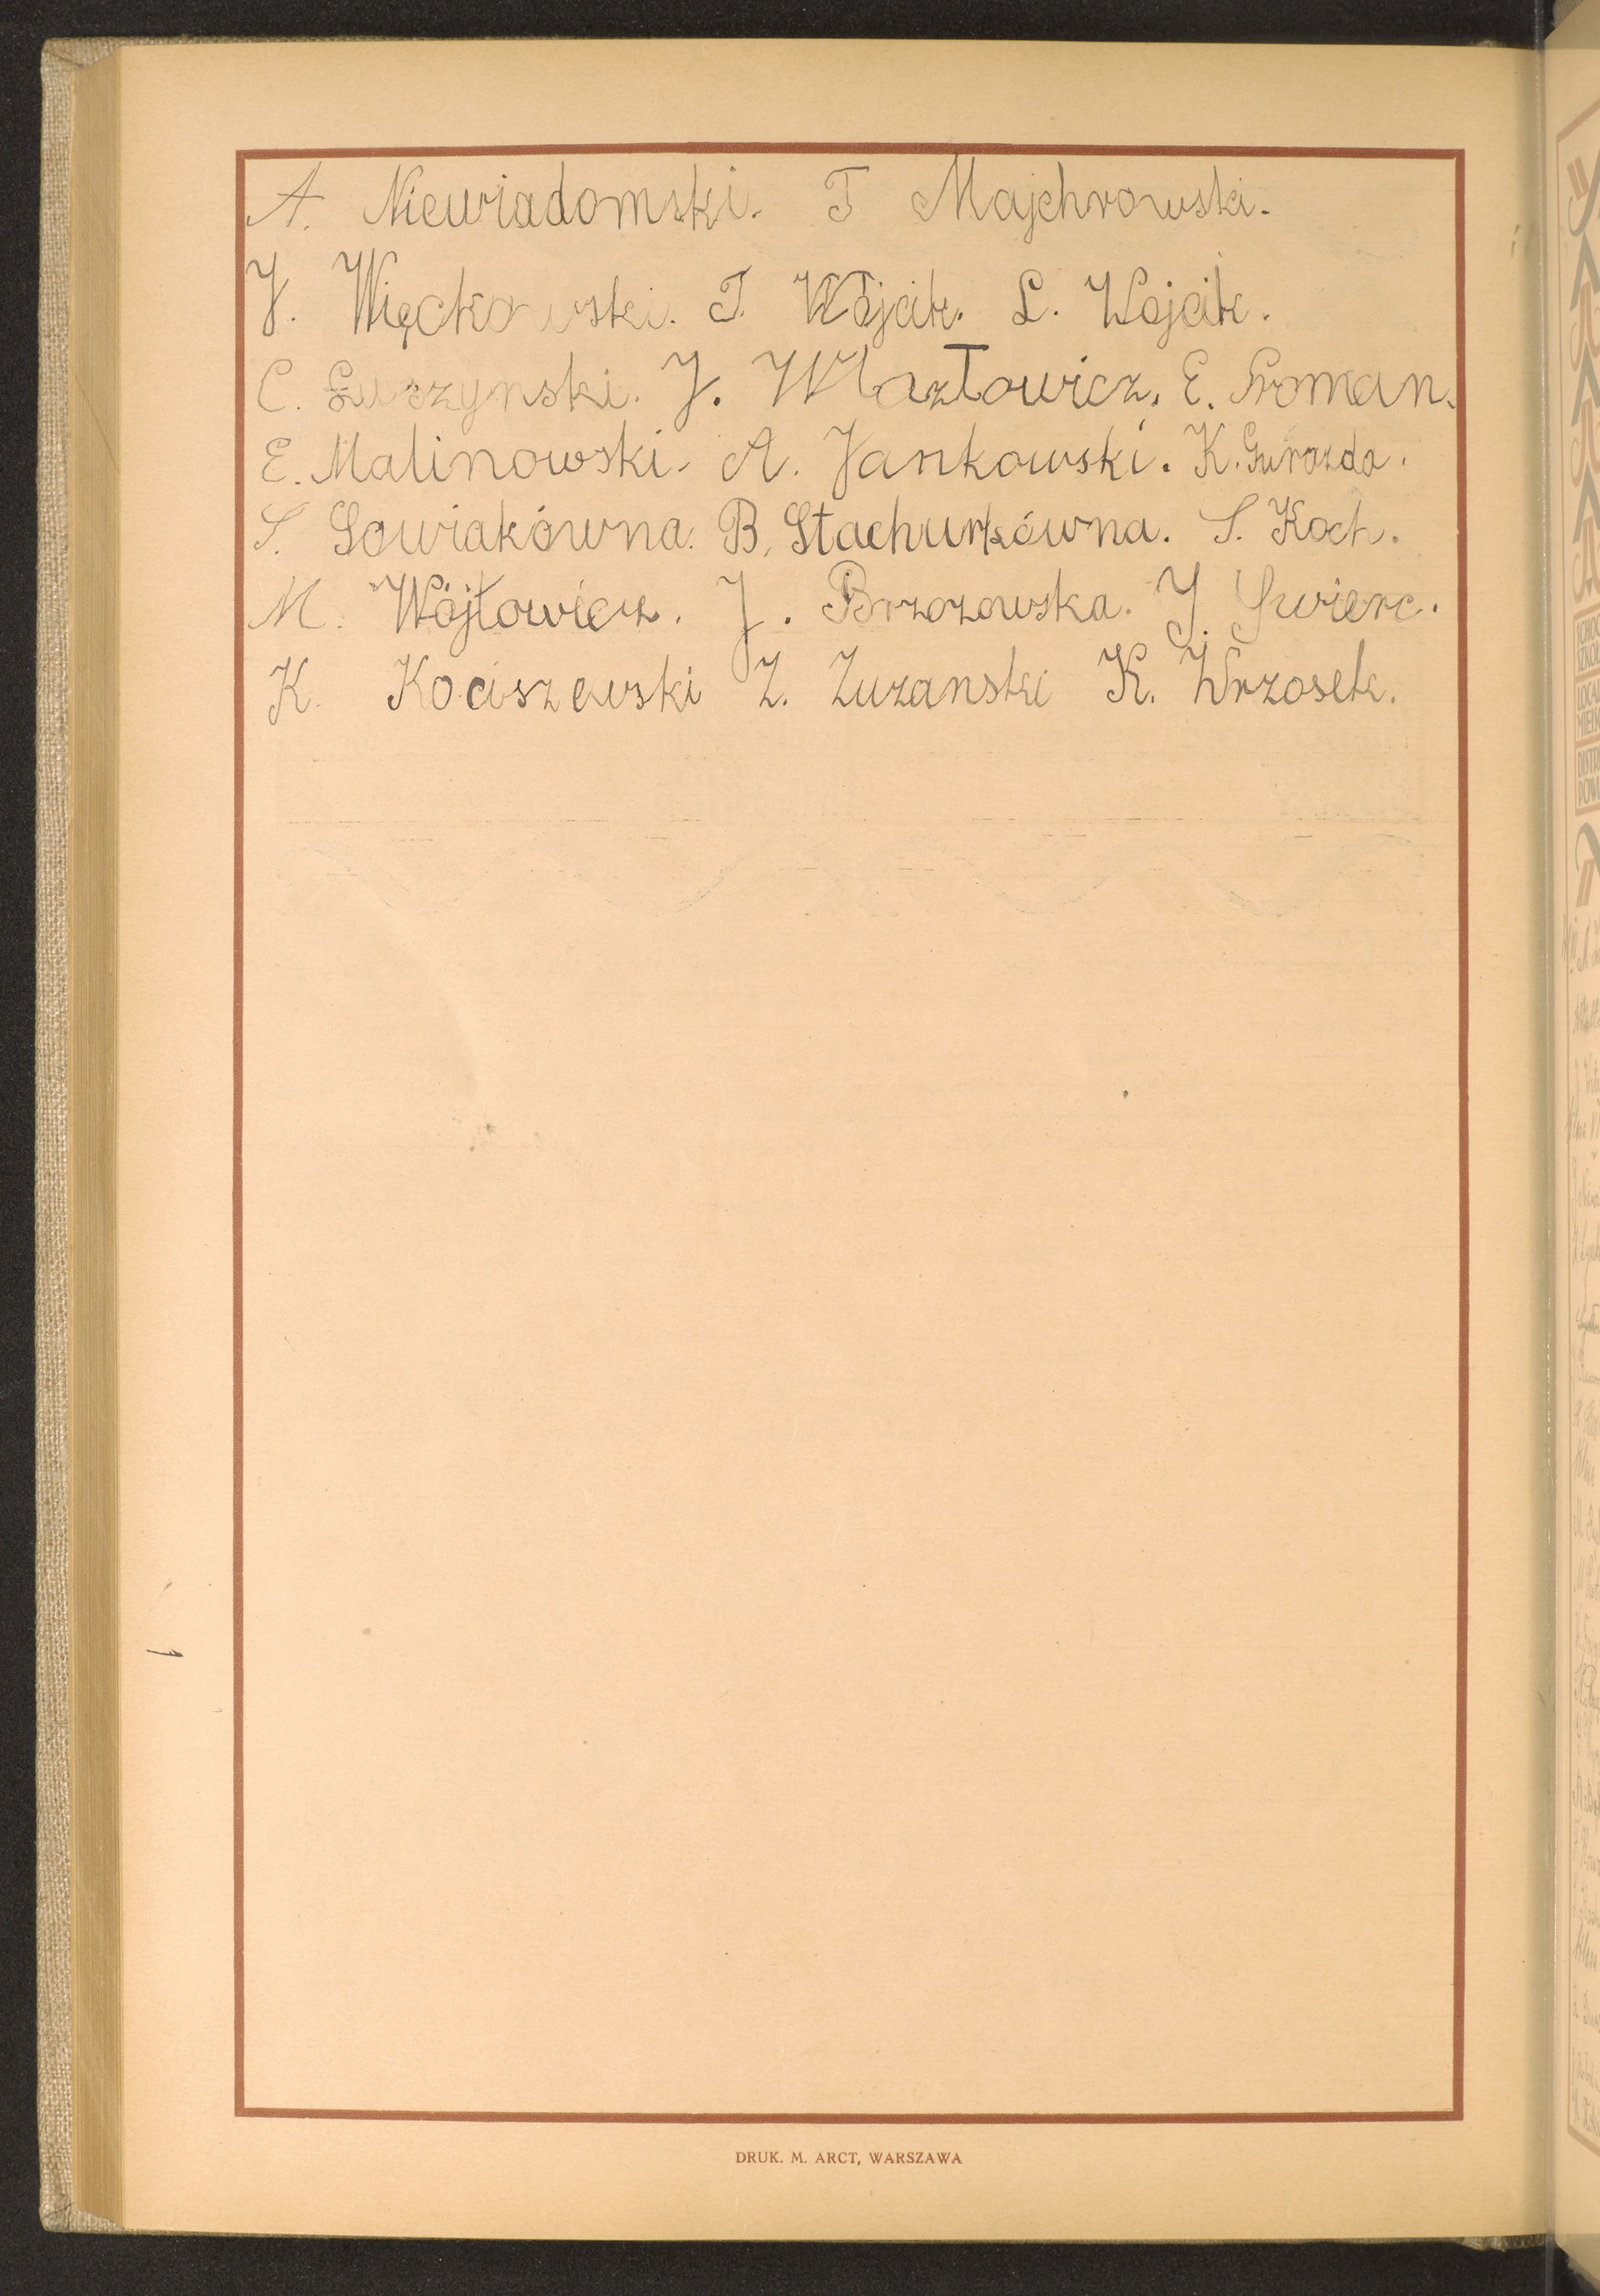 A. Niewiadomski. T Majchrowski.
J. Więckowski. T. Wójcik. L. Wojcik.
C. Łuszzynski. J. Wlazłowicz. E. Froman.
E. Malinowski. A. Jankowski. K. Gwiazda.
S. Sowiakówna. B. Stachurkówna. S. Koch.
M. Wójtowicz. J. Brzozowska. J. Swierc.
K. Kociszewski Z. Zuzanski K. Wrzosek.
DRUK. M. ARCT, WARSZAWA